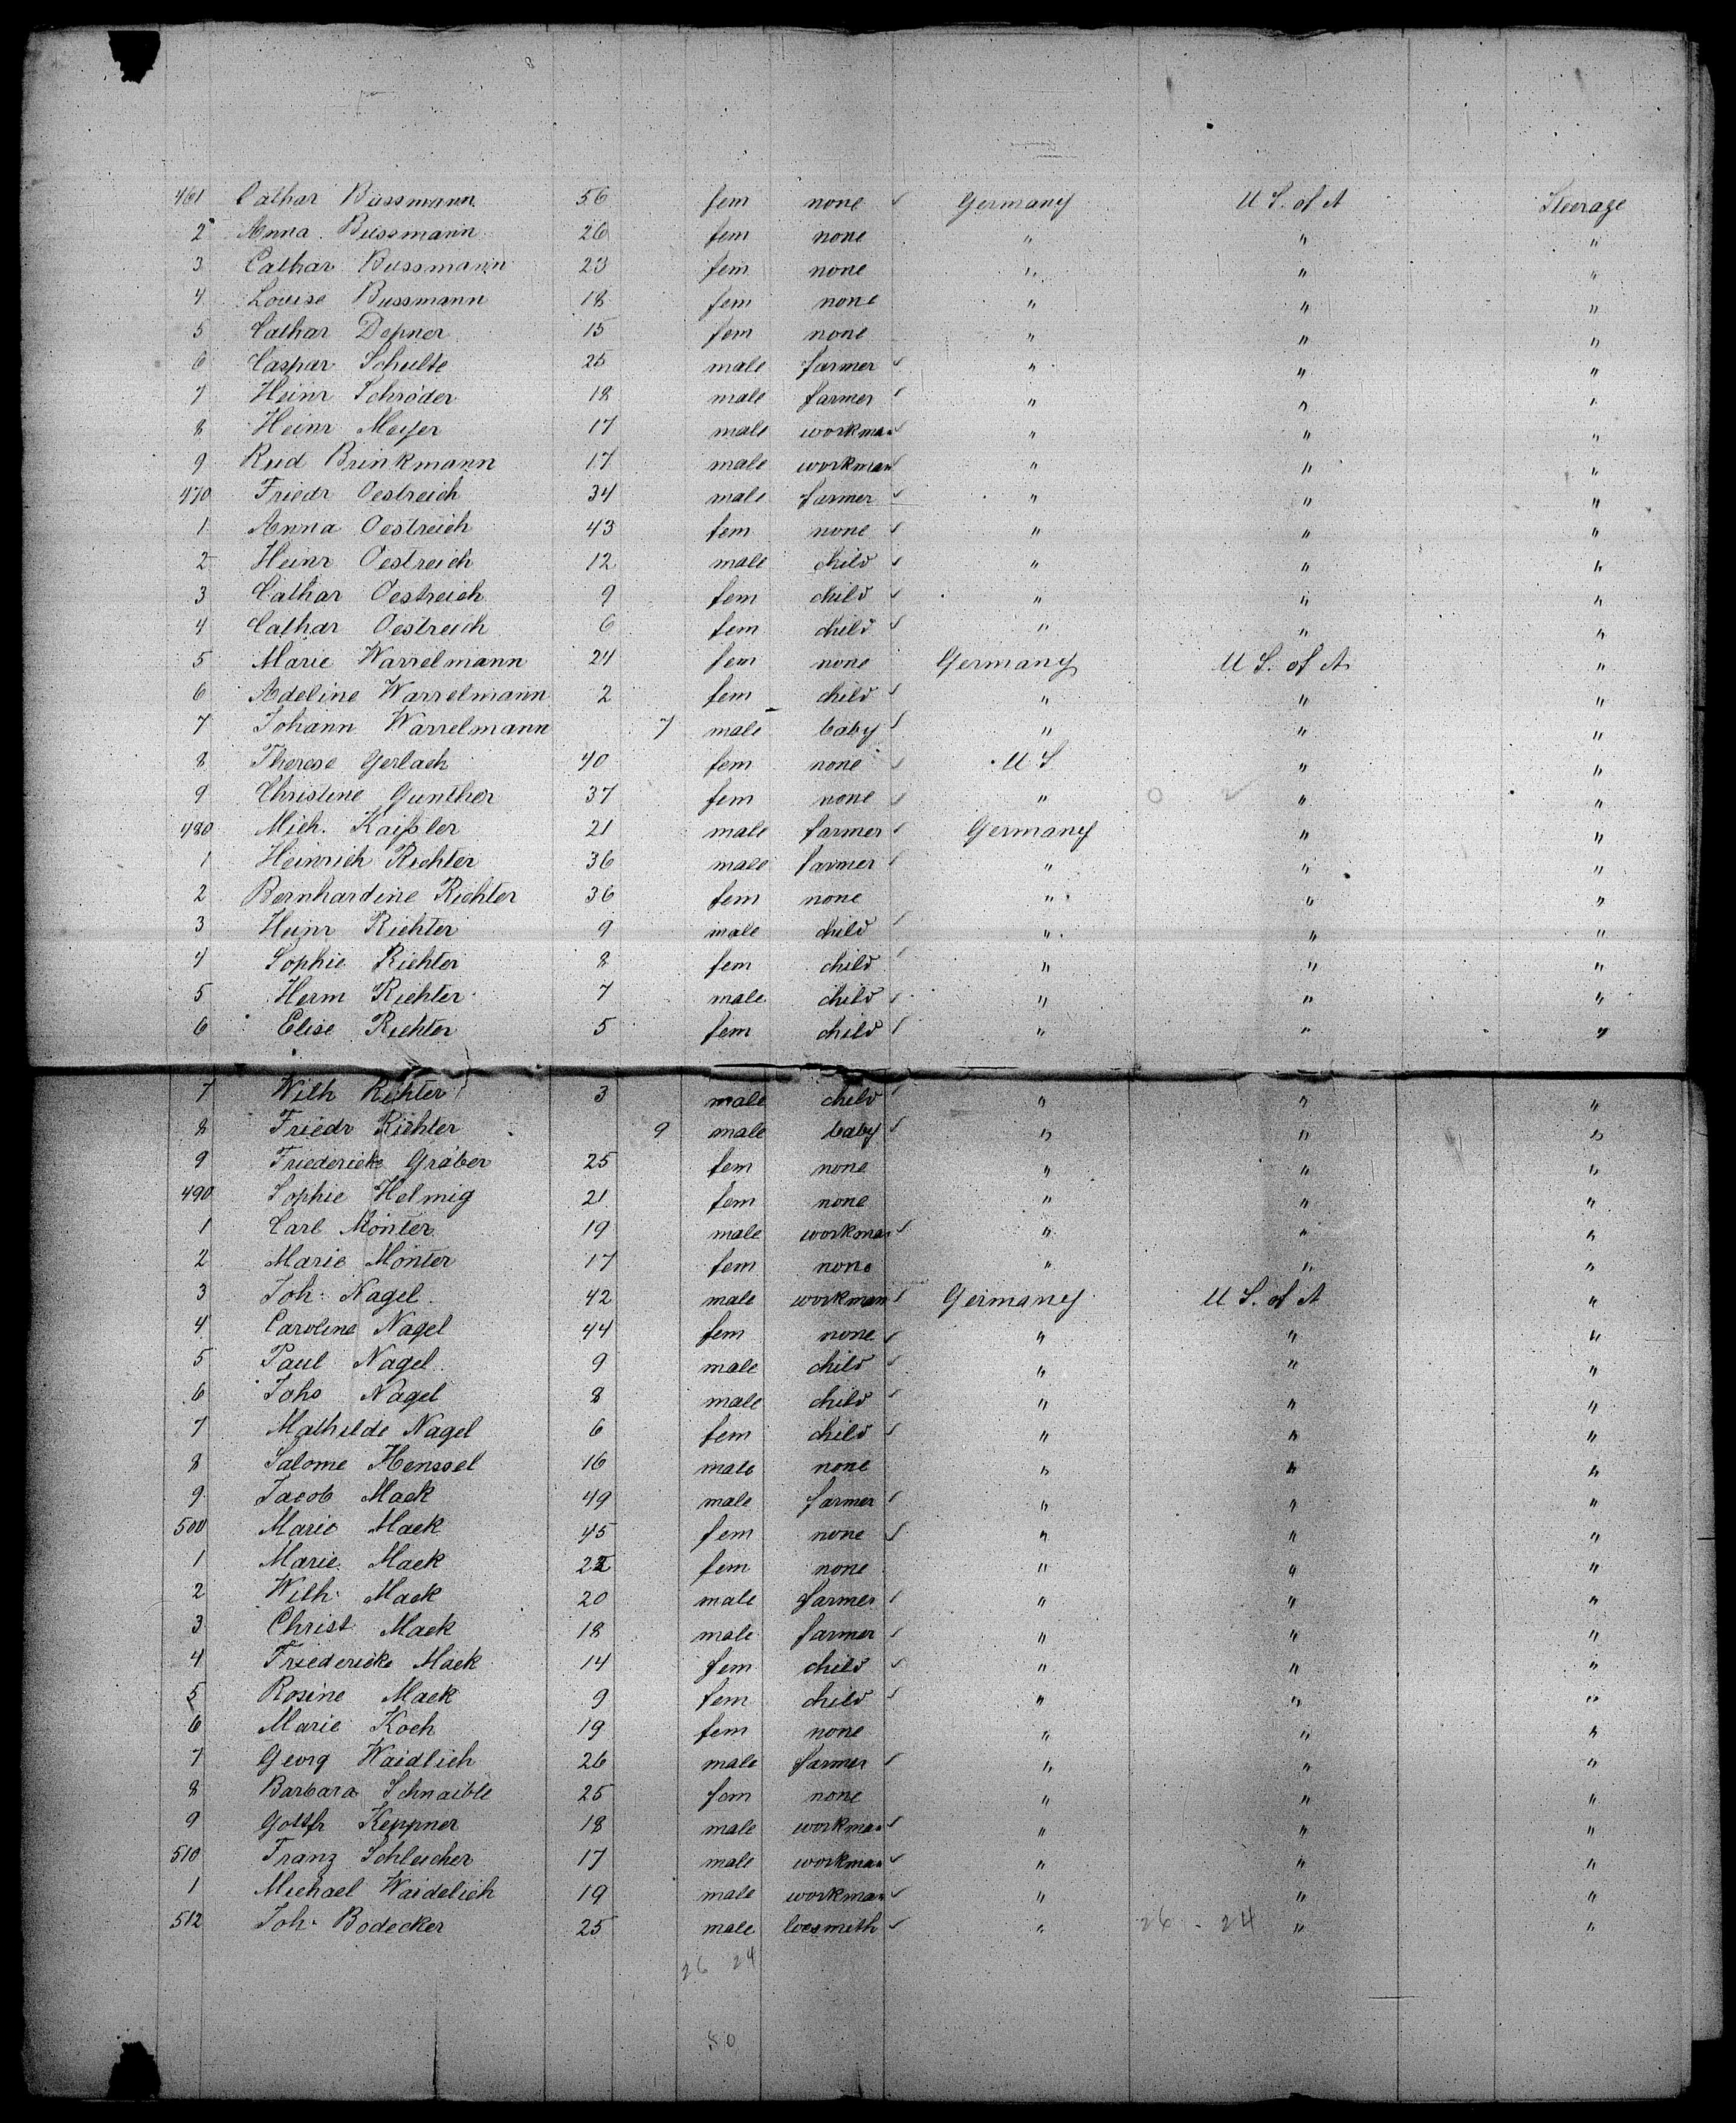 461 Cathar Bussmann 56 fem none Germany U S. of A Steerage
2 Anna Bussmann 26 fem none " " "
3 Cathar Bussmann 23 fem none " " "
4 Louise Bussmann 18 fem none " " "
5 Cathar Depner 15 fem none " " "
6 Caspar Schulte 25 male farmer " " "
7 Heinr Schröder 18 male farmer " " "
8 Heinr Meyer 17 male workman " " "
9 Rud Brinkmann 17 male workman " " "
470 Friedr Oestreich 34 male farmer " " "
1 Anna Oestreich 43 fem none " " "
2 Heinr Oestreich 12 male child " " "
3 Cathar Oestreich 9 fem child " " "
4 Cathar Oestreich 6 fem child " " "
5 Marie Warrelmann 24 fem none Germany U S. of A "
6 Adeline Warrelmann 2 fem child " " "
7 Johann Warrelmann 7 male baby " " "
8 Therese Gerlach 40 fem none U S " "
9 Christine Gunther 37 fem none " " "
480 Mich. Kaißler 21 male farmer Germany " "
1 Heinrich Richter 36 male farmer " " "
2 Bernhardine Richter 36 fem none " " "
3 Heinr Richter 9 male child " " "
4 Sophie Richter 8 fem child " " "
5 Herm Richter 7 male child " " "
6 Elise Richter 5 fem child " " "
7 Wilh Richter 3 male child " " "
8 Friedr Richter 9 male baby " " "
9 Friedericke Gräber 25 fem none " " "
490 Sophie Helmig 21 fem none " " "
1 Carl Mönter 19 male workman " " "
2 Marie Mönter 17 fem none " " "
3 Joh. Nagel 42 male workman Germany U S. of A "
4 Caroline Nagel 44 fem none " " "
5 Paul Nagel 9 male child " " "
6 Johs Nagel 8 male child " " "
7 Mathilde Nagel 6 fem child " " "
8 Salome Henssel 16 male none " " "
9 Jacob Mack 49 male farmer " " "
500 Marie Mack 45 fem none " " "
1 Marie Mack fem none " " "
2 Wilh. Mack 20 male farmer " " "
3 Christ Mack 18 male farmer " " "
4 Friedericke Mack 14 fem child " " "
5 Rosine Mack 9 fem child " " "
6 Marie Koch 19 fem none " " "
7 Georg Waidlich 26 male farmer " " "
8 Barbara Schnaible 25 fem none " " "
9 Gottfr Keppner 18 male workman " " "
510 Franz Schleicher 17 male workman " " "
1 Michael Waidelich 19 male workman " " "
512 Joh. Bodecker 25 male locsmith " 26 - 24 " "
26 24
80